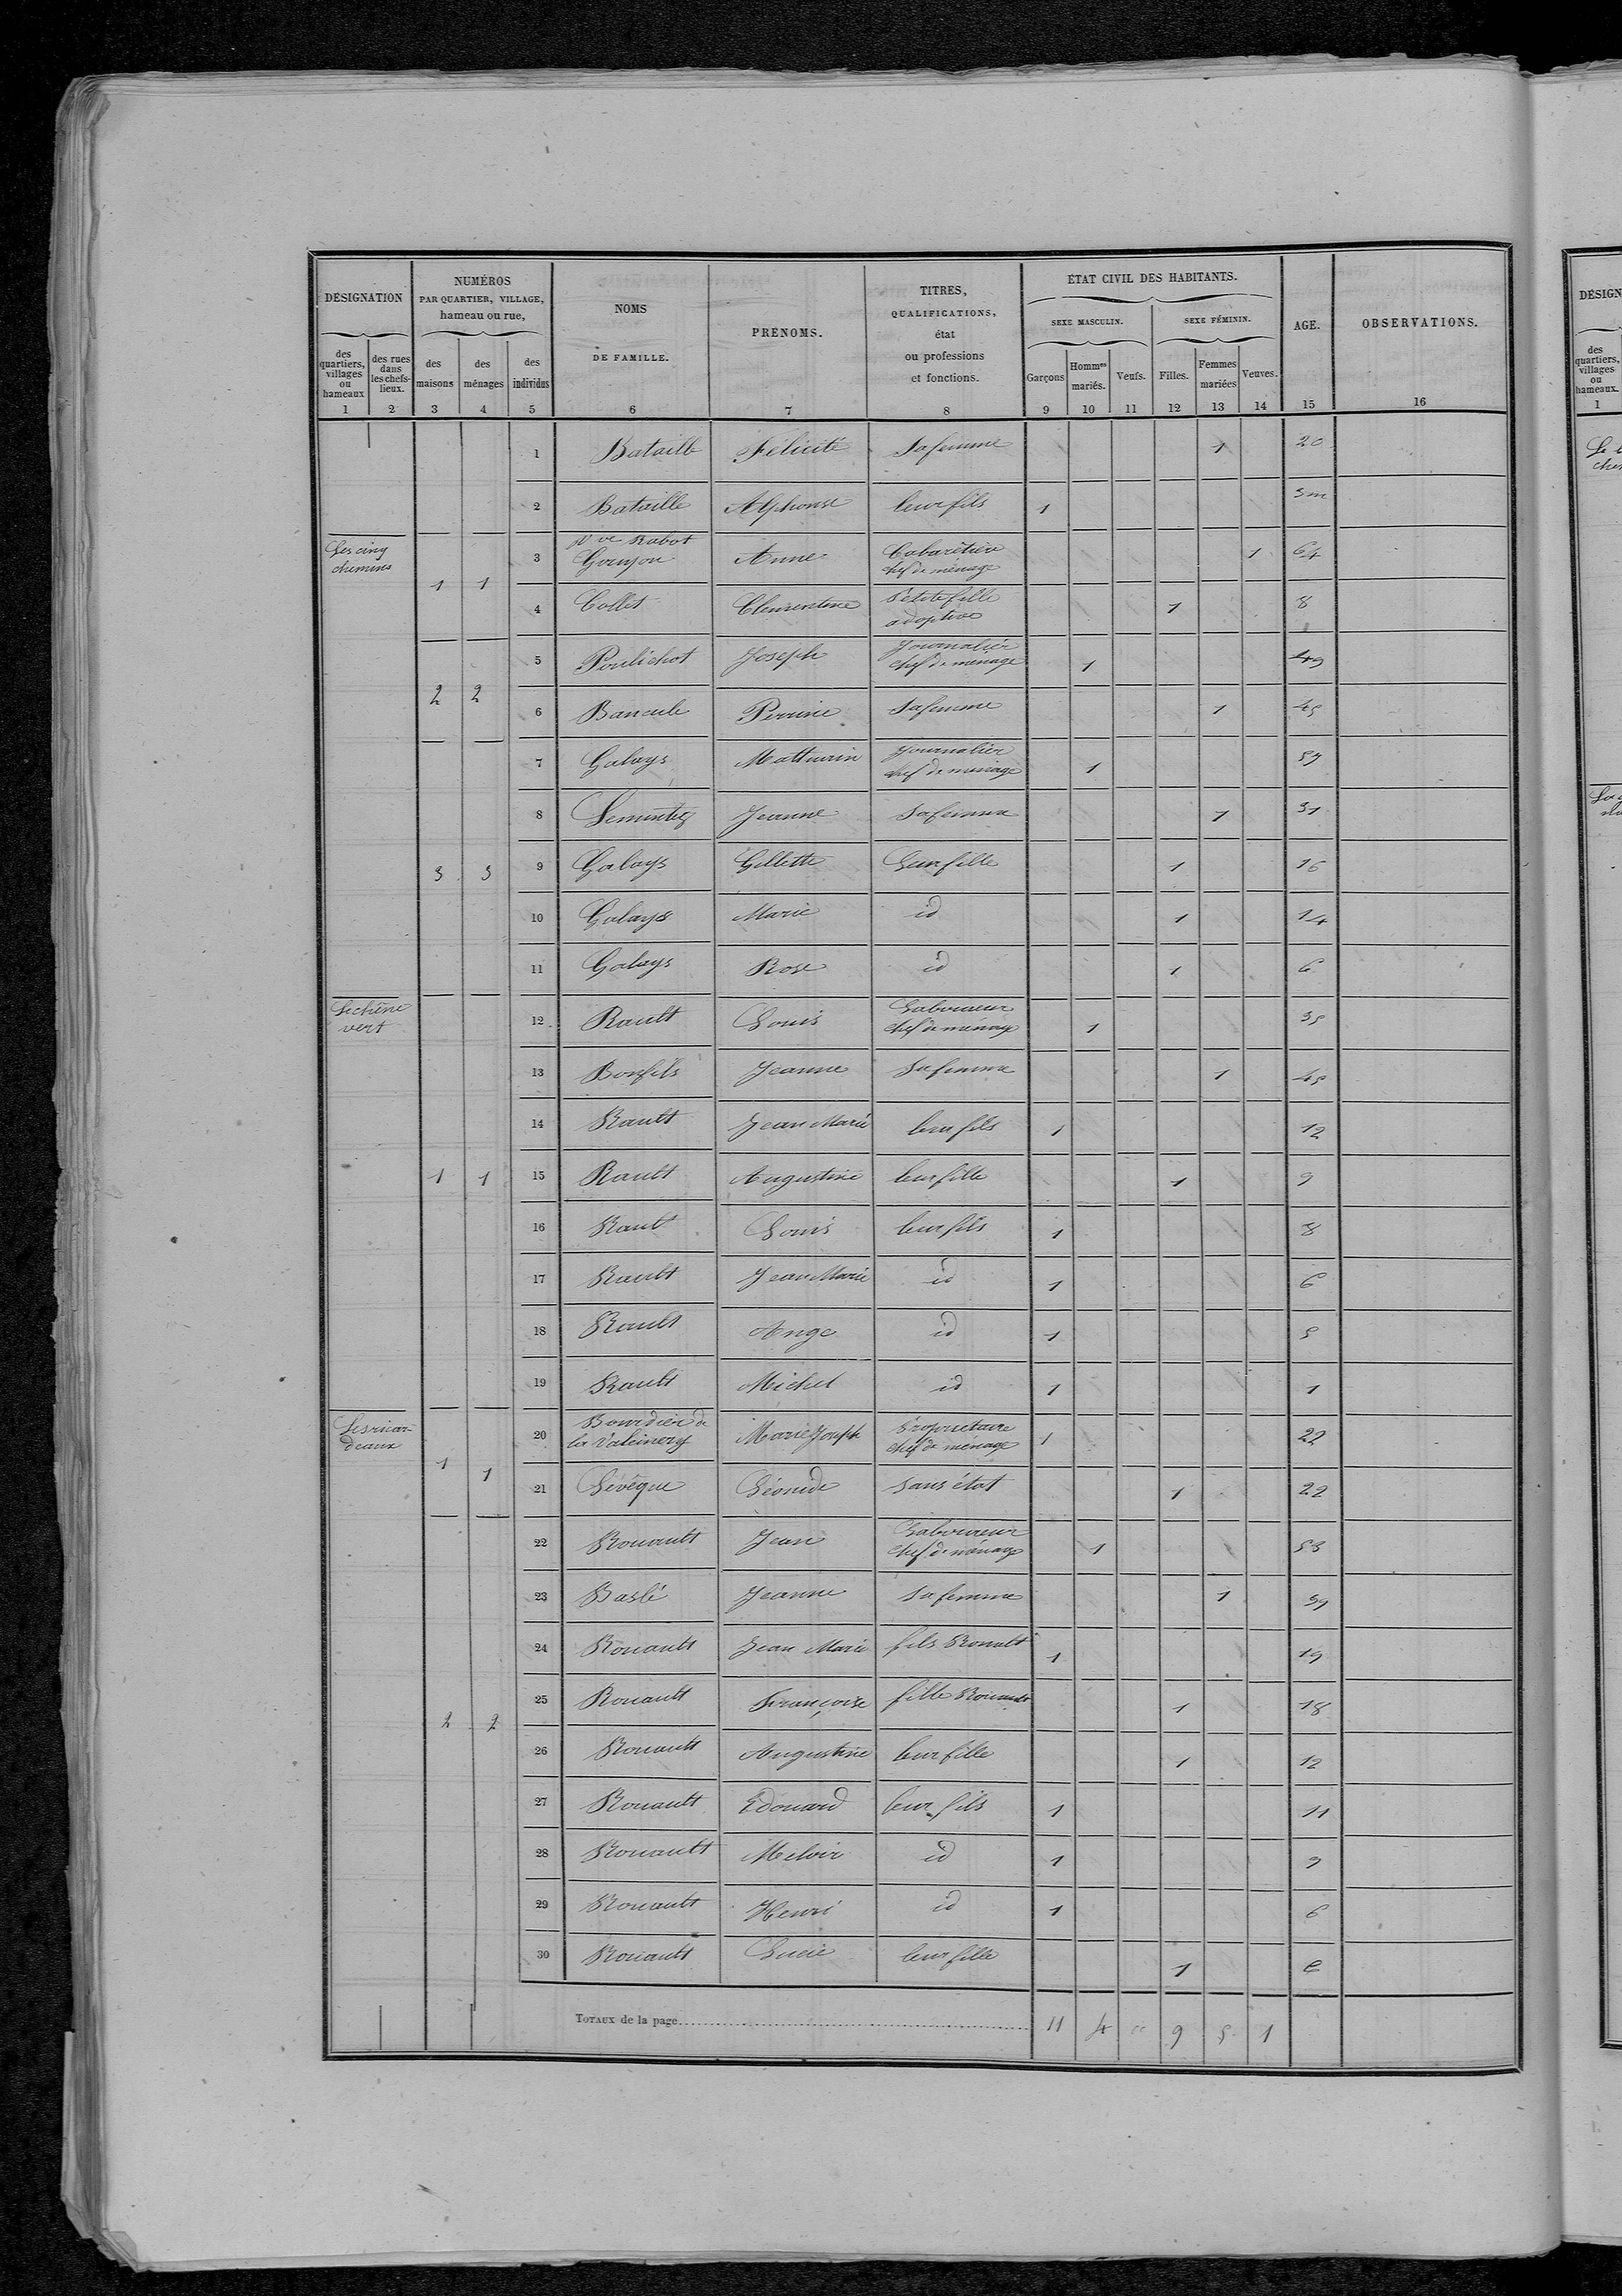 DÉSIGNATION
NUMÉROS
PAR QUARTIER, VILLAGE,
hameau ou rue,
NOMS
DE FAMILLE.
PRÉNOMS.
TITRES,
QUALIFICATIONS,
état
ou professions
et fonctions.
ÉTAT CIVIL DES HABITANTS.
SEXE MASCULIN.
SEXE FÉMININ.
AGE.
OBSERVATIONS.
des quartiers, villages ou hameaux
des rues dans les chefs-lieux.
des maisons
des ménages
des individus
Garçons
Hommes mariés.
Veufs.
Filles.
Femmes mariées
Veuves.
1 2 3 4 5 6 7 8 9 10 11 12 13 14 15 16
1 Bataille Félicité Sa femme 1 20
2 Bataille Alphonse leur fils 1 3m
Les cinq chemins 1 1
3 Vve Rabot Goujon Anne Cabaretière chef de ménage 1 64
4 Collet Clementine Petite fille adoptive 1 8
5 Poulichot Joseph Journalier chef de ménage 1 49
2 2
6 Perrine Sa femme 1 45
7 Galays Mathurin Journalier chef de ménage 1 59
8 Jeanne Sa femme 1 31
3 3 9 Galays Gillette Leur fille 1 16
10 Galays Marie id 1 14
11 Galays Rose id 1 6
Le chêne vert
12 Rault Louis Laboureur chef de ménage 1 35
13 Bonfils Jeanne Sa femme 1 45
14 Rault Jean Marie leur fils 1 12
1 1 15 Rault Augustine leur fille 1 9
16 Rault Louis leur fils 1 8
17 Rault Jean Marie id 1 6
18 Rault Ange id 1 5
19 Rault Michel id 1 1
Les ricardeaux 1 1
20 Bourdier de la Marie Joseph Propriétaire chef de ménage 1 22
21 Lévêque Léonide Sans état 1 22
22 Rouault Jean Laboureur chef de ménage 1 53
23 Baslé Jeanne Sa femme 1 39
24 Rouault Jean Marie fils Rouault 1 19
25 Rouault Françoise fille Rouault 1 18
2 2
26 Rouault Augustine leur fille 1 12
27 Rouault Edouard leur fils 1 11
28 Rouault Meloir id 1 9
29 Rouault Henri id 1 6
30 Rouault Lucie leur fille 1 6
TOTAUX de la page 11 4 " 9 5 1
DÉSIGN
des quartiers, villages ou hameaux.
1